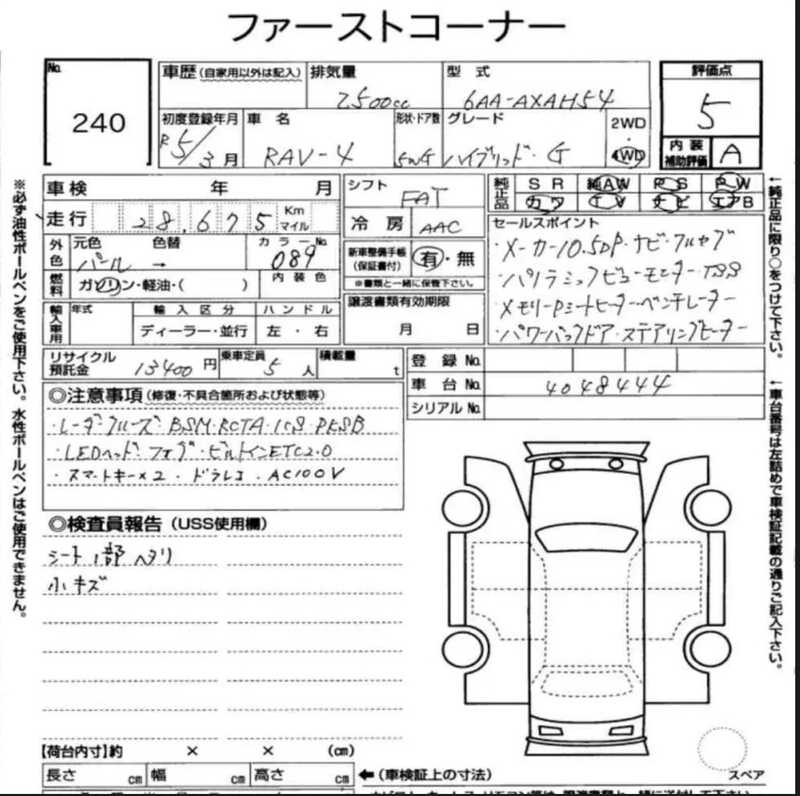 ファーストコーナー
No.
240
車歴(自家用以外は記入)
排気量 2500cc
型式 6AA-AXAH54
評価点
5
初度登録年月 R5年3月
車名 RAV-4
形状・ドア数 5WG
グレード ハイブリッド・G
2WD
・
4WD
内装
補助評価 A
車検 年 月
シフト FAT
純正品
SR 純AW PS PW
カワ TV ナビ エアB
走行 28,675 Km マイル
冷房 AAC
セールスポイント
・メーカー10.5DP・ナビ・フルセグ
・パノラミックビューモニター・TSS
・メモリーPシートヒーター・ベンチレーター
・パワーバックドア・ステアリングヒーター
外色 元色 パール 色替 → カラーNo. 089
新車整備手帳
(保証書付) 有・無
※書類と一緒に保管下さい。
燃料 ガソリン・軽油・( ) 内装色
譲渡書類有効期限
月 日
輸入車用 年式 輸入区分 ハンドル
ディーラー・並行 左・右
リサイクル
預託金 13400円 乗車定員 5人 積載量 t
登録No.
車台No. 4048444
シリアルNo.
◎注意事項(修復・不具合箇所および状態等)
・レーダークルーズ BSM・RCTA・ICS・PKSB
・LEDヘッド・フォグ・ビルトインETC2.0
・スマートキー×2・ドラレコ・AC100V
◎検査員報告(USS使用欄)
シート1部ヘタリ
小キズ
【荷台内寸】約 × × (cm)
長さ cm 幅 cm 高さ cm
←(車検証上の寸法)
スペア
※必ず油性ボールペンをご使用下さい。水性ボールペンはご使用できません。
←純正品に限り○をつけて下さい。
←車台番号は左詰めで車検証記載の通りご記入下さい。